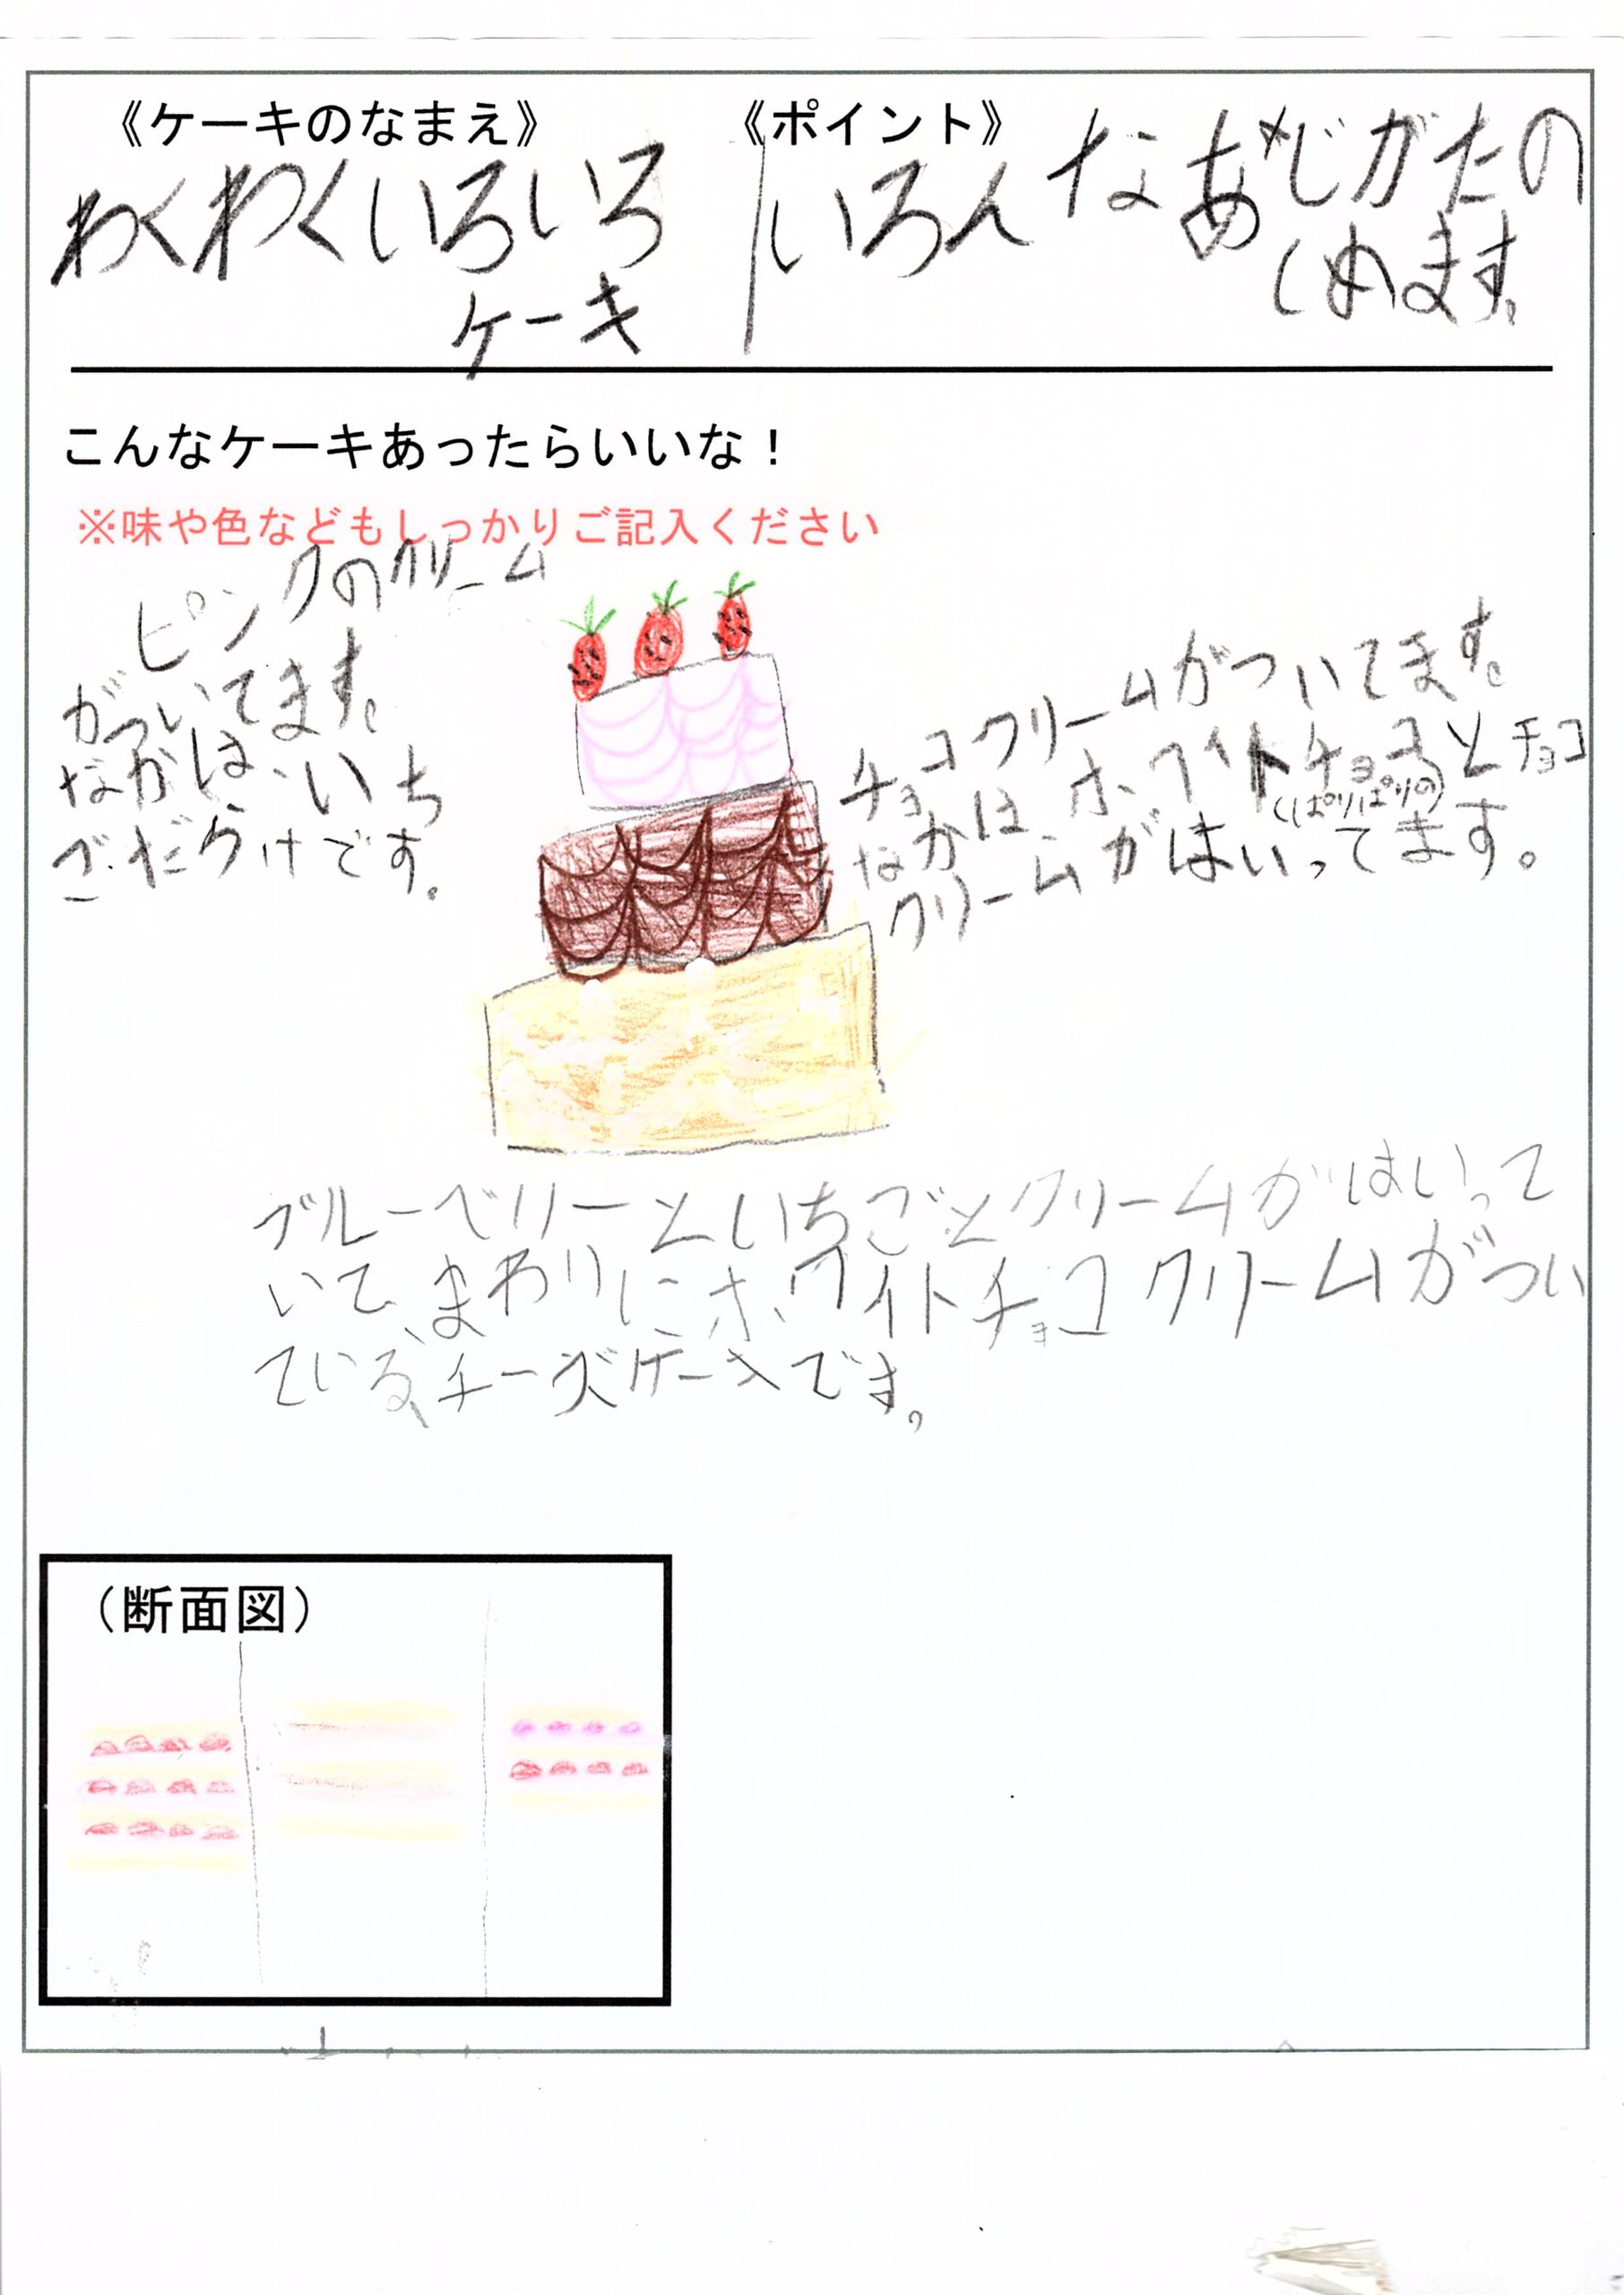 《ケーキのなまえ》
わくわくいろいろ
ケーキ
《ポイント》
いろんなあじがたの
しめます。
こんなケーキあったらいいな！
※味や色などもしっかりご記入ください
ピンクのクリーム
がついてます。
なかは、いち
ごだらけです。
チョコクリームがついてます。
なかは、ホワイトチョコとチョコ
(ぱりぱりの)
クリームがはいってます。
ブルーベリーといちごとクリームがはいって
いて、まわりにホワイトチョコクリームがつい
ている、チーズケーキです。
（断面図）